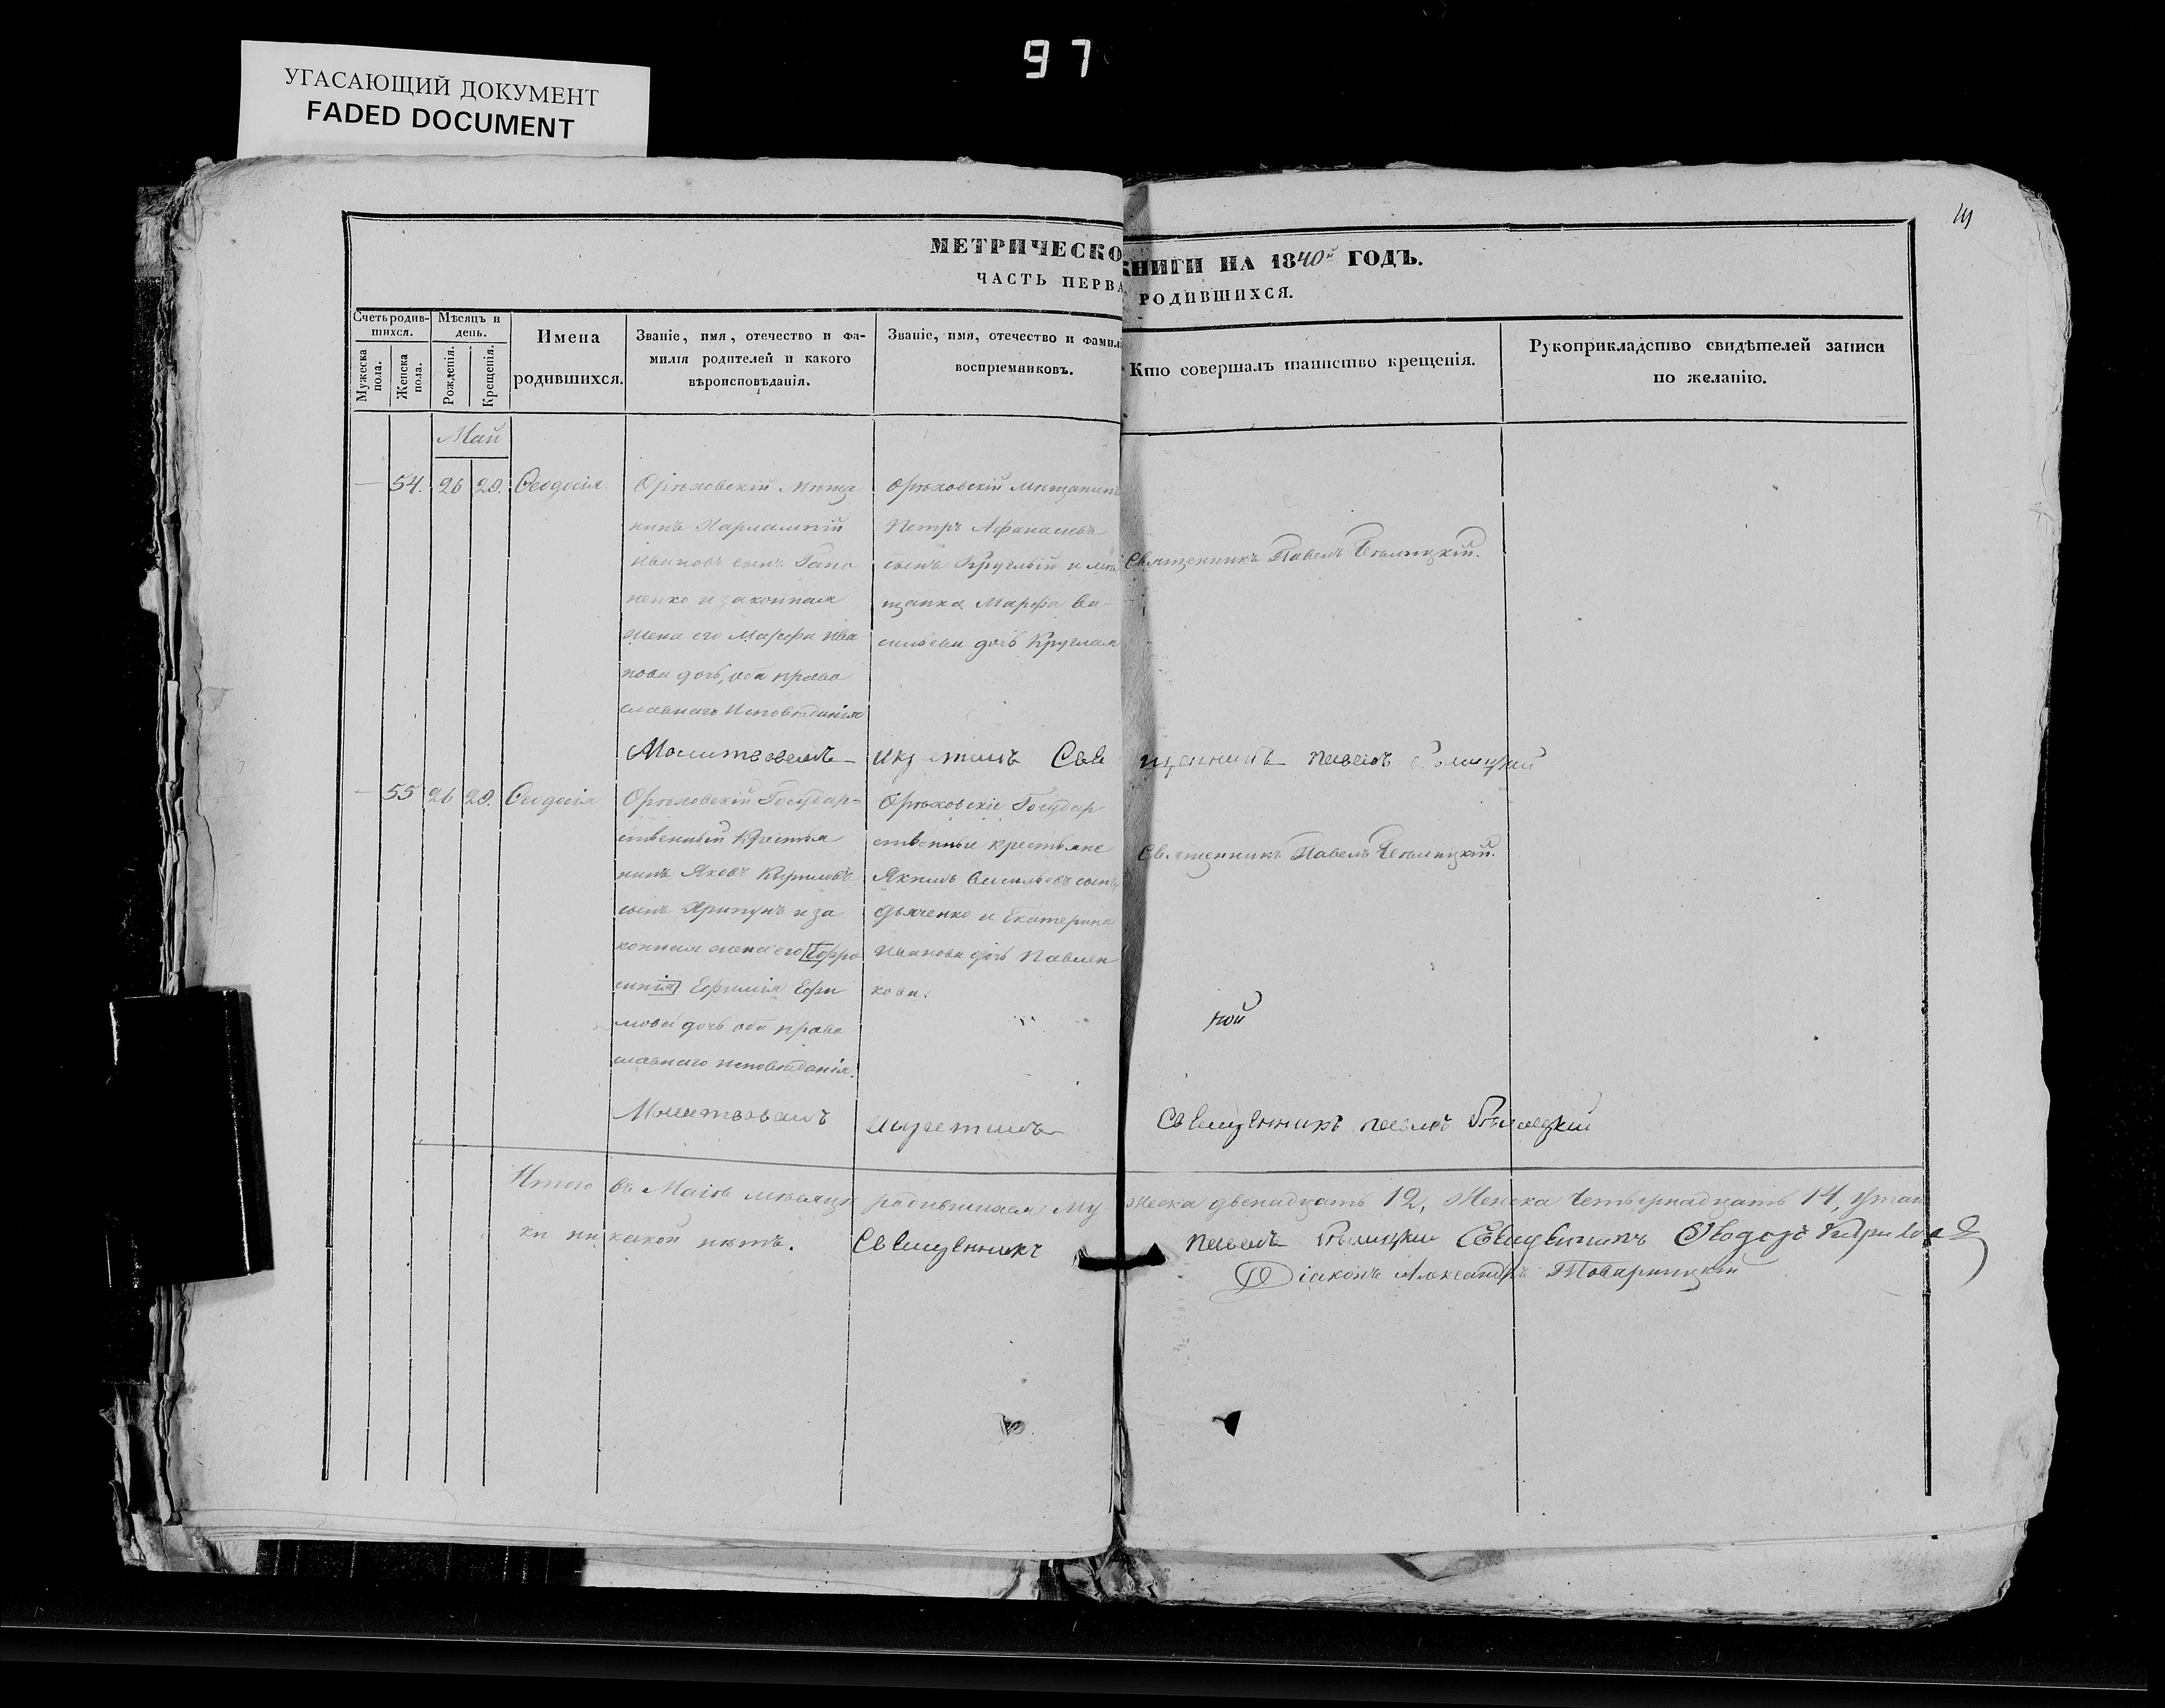 97
УГАСАЮЩИЙ ДОКУМЕНТ
FADED DOCUMENT
МЕТРИЧЕСКО КНИГИ НА 1840й ГОДЪ.
ЧАСТЬ ПЕРВА РОДИВШИХСЯ.
Счетъ родив-
шихся.
Мужеска
пола.
Женска
пола.
Мѣсяцъ и
день.
Рожденія.
Крещенія.
Имена
родившихся.
Званіе, имя, отечество и фа-
милія родителей и какого
вѣроисповѣданія.
Званіе, имя, отечество и фамил
воспріемниковъ.
Кто совершалъ таинство крещенія.
Рукоприкладство свидѣтелей записи
по желанію.
Май
54. 26 29. Ѳеодосія.
Орѣховскій Мѣща
нинъ Харлампій
Ивановъ сынъ Гапо
ненко и законная
жена его Марфа Ива
нова дочь, оба право
славнаго Исповѣданія
Орѣховскій Мѣщанинъ
Петръ Афанасьевъ
сынъ Круглый и мѣ
щанка Марфа Ва-
сильева дочь Круглая
Священникъ Павелъ
Молитвовалъ и крестилъ Священникъ Павелъ
55 26 29. Ѳеодосія
Орѣховскій Государ-
ственный Крестья
нинъ Яковъ Кириловъ
сынъ Хрипунъ и за
конная жена его Ефро
синія Ефимія Ефи
мова дочь оба право
славнаго исповѣданія.
Орѣховскіе Государ
ственные крестьяне
Якимъ Васильевъ сынъ
Дьяченко и Екатерина
Иванова дочь Павлен
кова.
Священникъ Павелъ
Молитвовалъ и крестилъ Священникъ Павелъ
Итого въ Маіѣ мѣсяцѣ родившихся Мужеска двенадцать 12, Женска четырнадцать 14, утай
ки никакой нѣтъ. Священникъ Павелъ Священникъ
Діаконъ Александръ Товарницкій